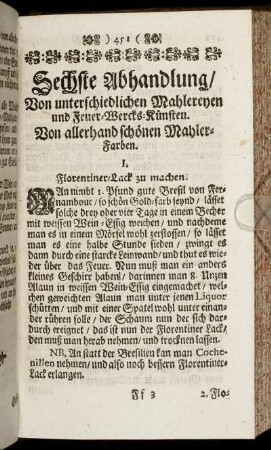 ) 451 (
Sechste Abhandlung/
Von unterschiedlichen Mahlereyen
und Feuer-Wercks-Künsten.
Von allerhand schönen Mahler-
Farben.
I.
Florentiner-Lack zu machen.
MAn nimbt 1. Pfund gute Bresil von Fer-
nambour/ so schön Gold-farb seynd/ lässet
solche drey oder vier Tage in einem Becher
mit weissen Wein-Essig weichen/ und nachdeme
man es in einem Mörsel wohl zerstossen/ so lässet
man es eine halbe Stunde sieden/ zwingt es
dann durch eine starcke Leinwand/ und thut es wie-
der über das Feuer. Nun muß man ein anders
kleines Geschirr haben/ darinnen man 8. Unzen
Alaun in weissen Wein-Essig eingemachet/ wel-
chen geweichten Alaun man unter jenen Liquor
schütten/ und mit einer Spatel wohl unter einan-
der rühren solle/ der Schaum nun der sich dar-
durch ereignet/ das ist nun der Florentiner Lack/
den muß man herab nehmen/ und trocknen lassen.
NB. An statt der Bresilien kan man Coche-
nillen nehmen/ und also noch bessern Florentiner-
Lack erlangen.
Ff 3
2. Flo-